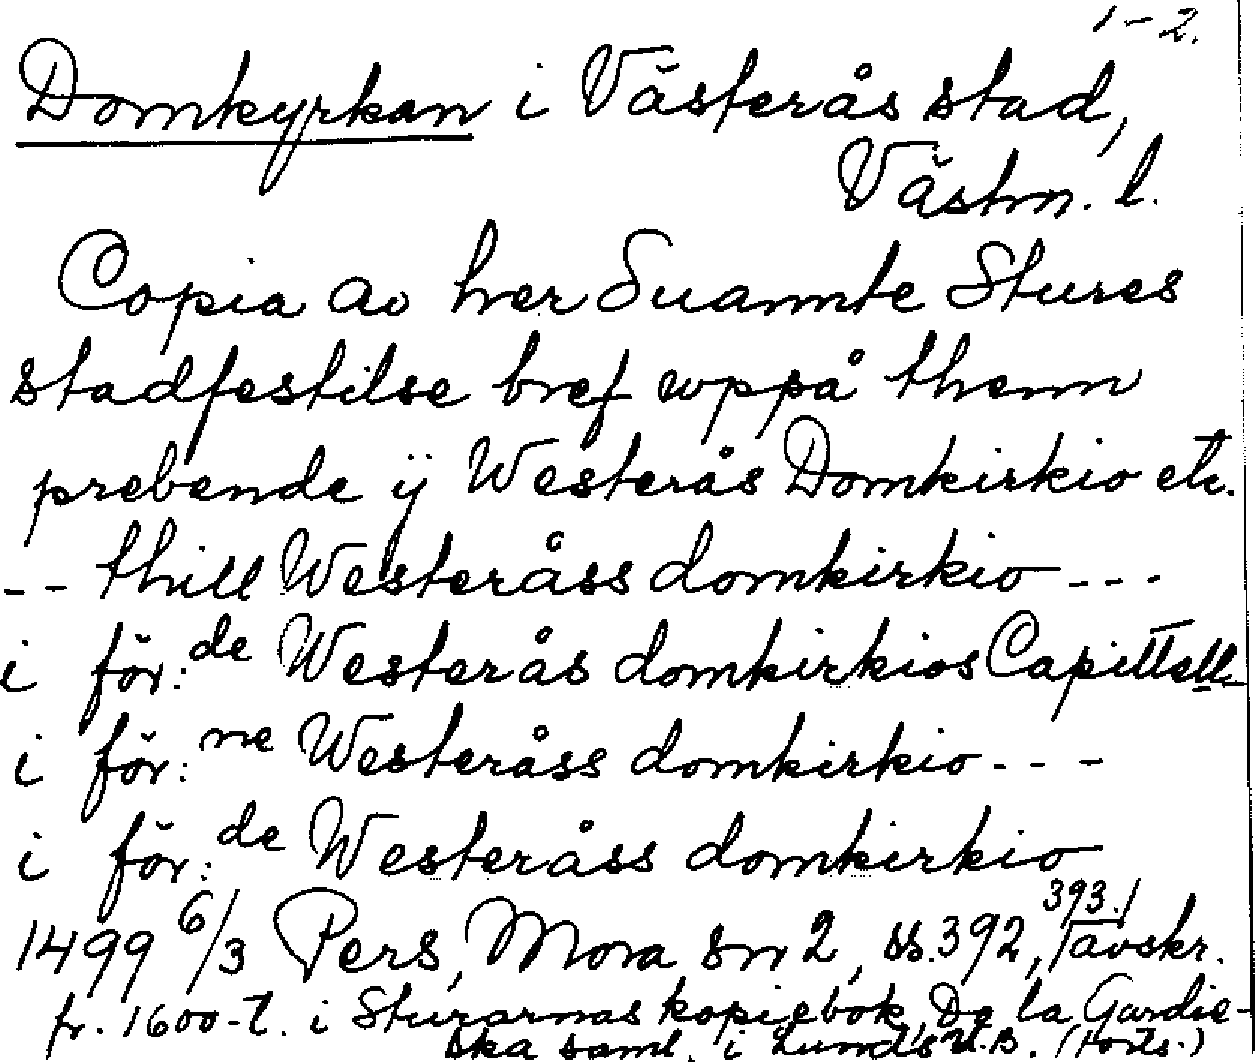 1-2.
Domkyrkan i Västerås stad,
Västm. l.
Copia av her Suannte Stures
stadfestilse bref wppå thenn
prebende ÿ Westerås Domkirkio etc.
-- thill Westeråss domkirkio ---
i för:de Westerås domkirkios Capittell
i för:ne Westeråss domkirkio ---
i för:de Westeråss domkirkio
1499 6/3 Pers, Mora sn 2, ss. 392, 393./ /avskr.
fr. 1600-t. i Sturarnas kopiebok, De la Gardie-
ska saml. i Lunds U.B. (Forts.)